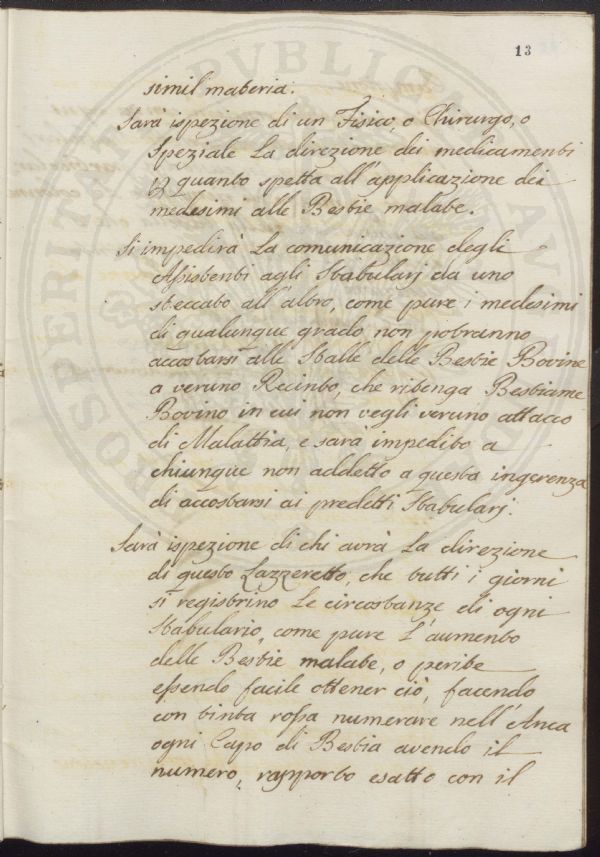 13
simil materia.
Sarà ispezione di un Fisico, o Chirurgo, o
Speziale La direzione dei medicamenti
quanto spetta all'applicazione dei
medesimi alle Bestie malate.
Si impedirà La comunicazione degli
Assistenti agli Stabularj da uno
steccato all'altro, come pure i medesimi
di qualunque grado non potranno
accostarsi alle Stalle delle Bestie Bovine
a veruno Recinto, che ritenga Bestiame
Bovino in cui non vegli veruno attacco
di Malattia, e sara impedito a
chiunque non addetto a questa ingerenza
di accostarsi ai predetti Stabularj.
Sarà ispezione di chi avrà La direzione
di questo Lazzeretto, che tutti i giorni
si registrino Le circostanze di ogni
Stabulario, come pure L'aumento
delle Bestie malate, o perite
essendo facile ottener ciò, facendo
con tinta rossa numerare nell'Anca
ogni Capo di Bestia avendo il
numero, rapporto esatto con il
PUBLICAE
PROSPERITATI